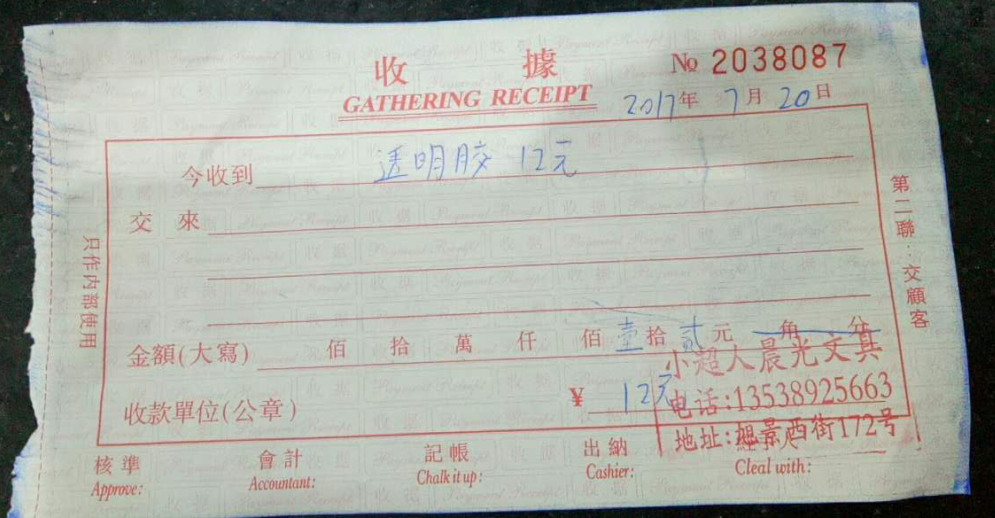 收 據 № 2038087
GATHERING RECEIPT 2017年 7月 20日
今收到 透明胶 12元
交 來
金額(大寫) 佰 拾 萬 仟 佰 壹 拾 贰 元 角 分
收款單位(公章) ¥ 12元
小超人晨光文具
电话:13538925663
地址:景西街172号
核準 會計 記帳 出納
Approve: Accountant: Chalk it up: Cashier: Cleal with:
只作内部使用
第二聯:交顧客